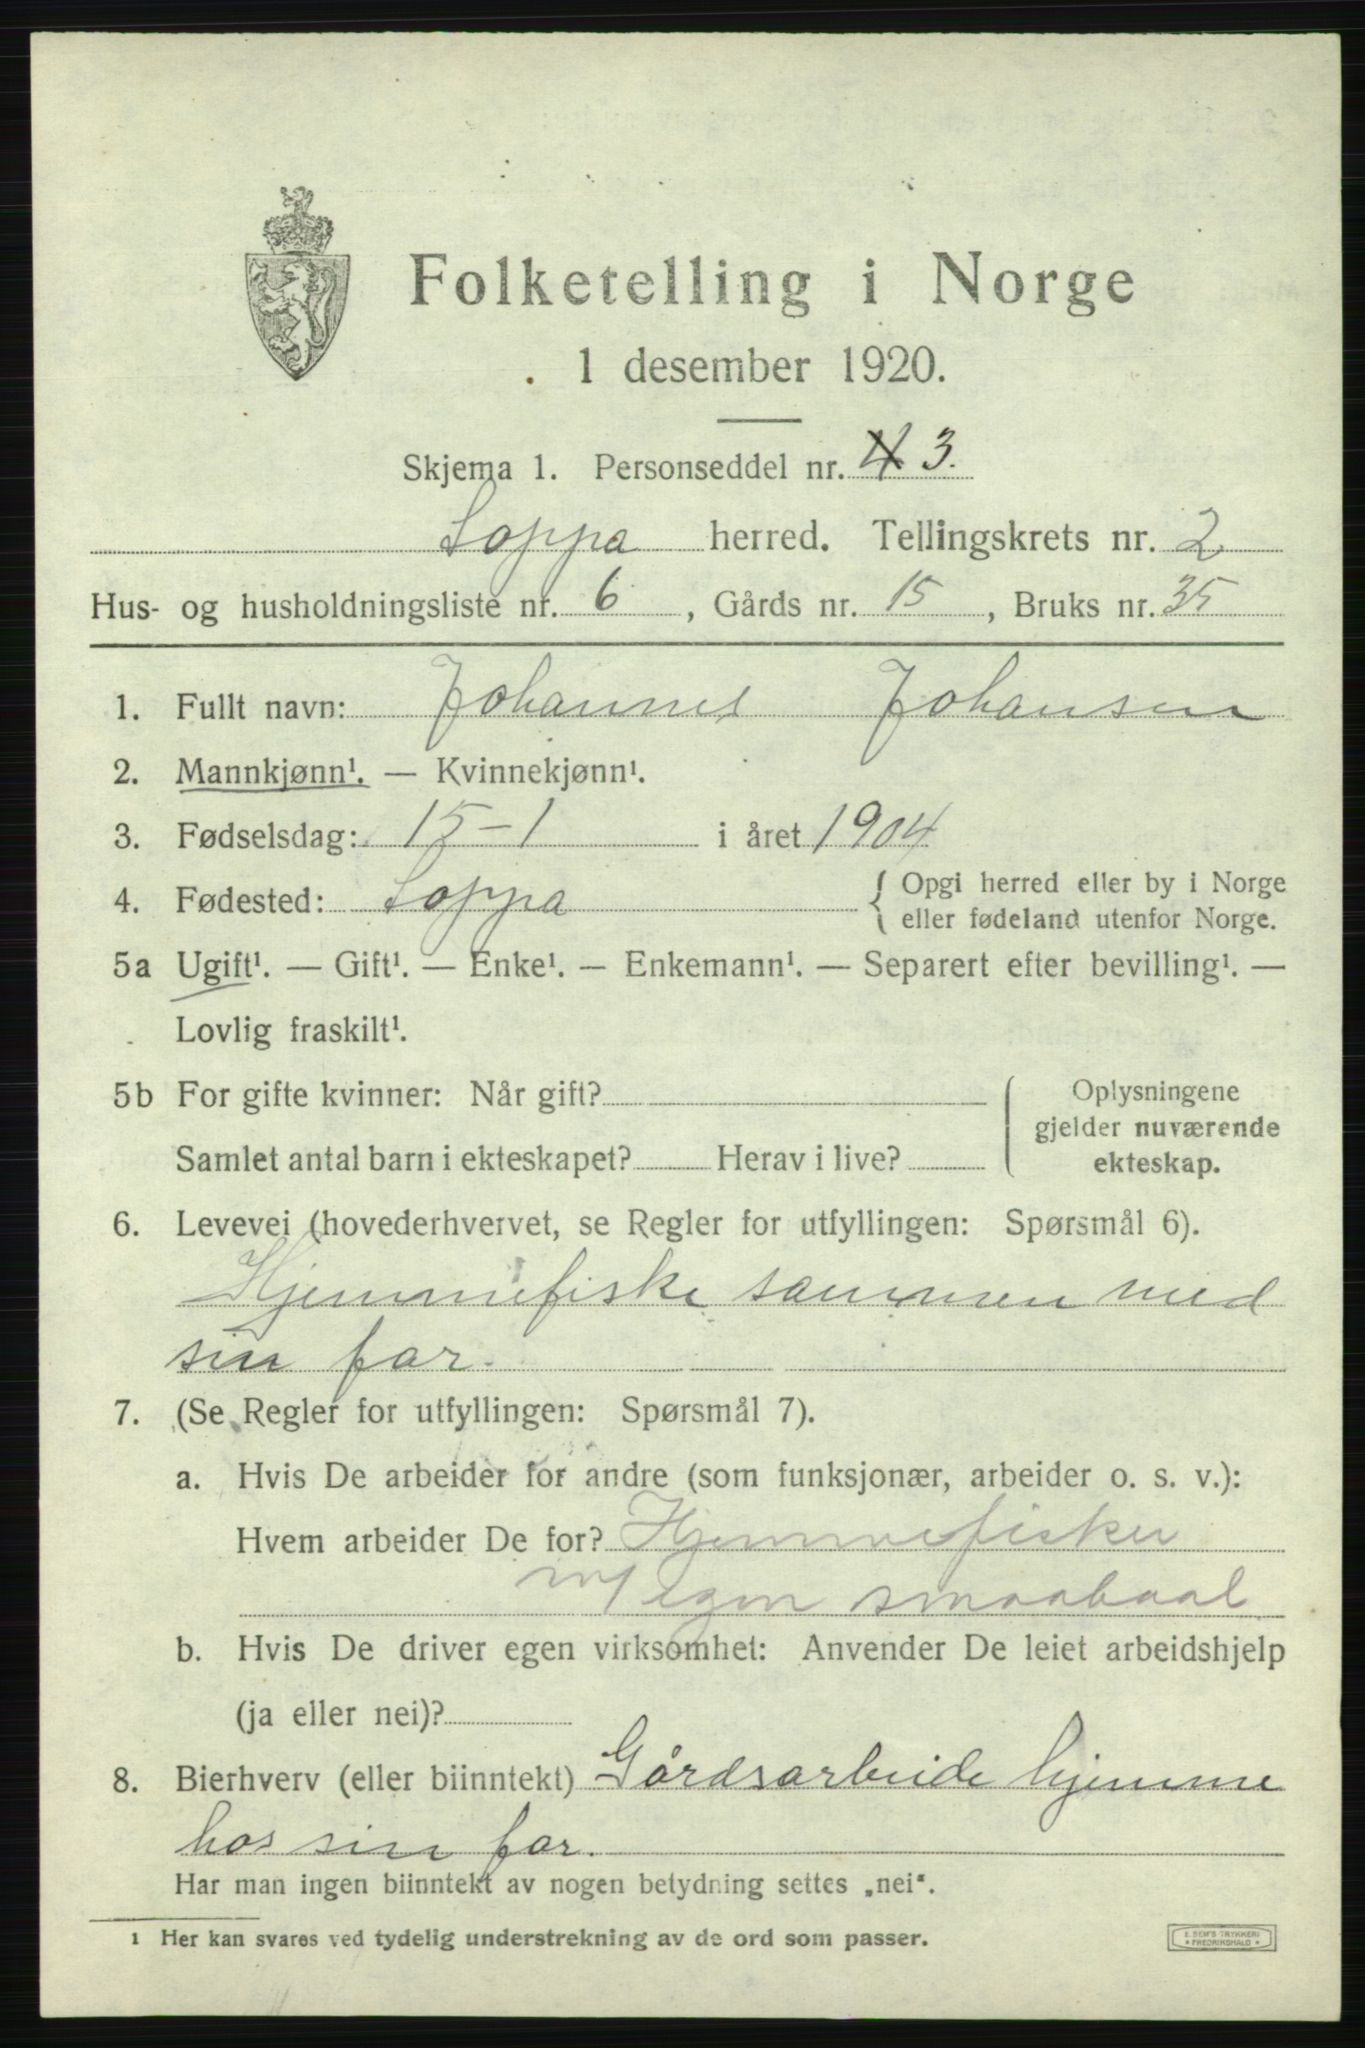 Folketelling i Norge
1 desember 1920.
Skjema 1. Personseddel nr. 4 3.
Loppa herred. Tellingskrets nr. 2
Hus- og husholdningsliste nr. 6, Gårds nr. 15, Bruks nr. 35
1. Fullt navn: Johannes Johansen
2. Mannkjønn¹. — Kvinnekjønn¹.
3. Fødselsdag: 15-1 i året 1904
4. Fødested: Loppa { Opgi herred eller by i Norge
eller fødeland utenfor Norge.
5a Ugift¹. — Gift¹. — Enke¹. — Enkemann¹. — Separert efter bevilling¹. —
Lovlig fraskilt¹.
5b For gifte kvinner: Når gift? ( Oplysningene
gjelder nuværende
Samlet antal barn i ekteskapet? Herav i live? ekteskap.
6. Levevei (hovederhvervet, se Regler for utfyllingen: Spørsmål 6).
Hjemmefiske sammen med
sin far.
7. (Se Regler for utfyllingen: Spørsmål 7).
a. Hvis De arbeider for andre (som funksjonær, arbeider o. s. v.):
Hvem arbeider De for? Hjemmefisker
m/ egen smaabaat
b. Hvis De driver egen virksomhet: Anvender De leiet arbeidshjelp
(ja eller nei)?
8. Bierhverv (eller biinntekt) Gårdsarbeide hjemme
hos sin far.
Har man ingen biinntekt av nogen betydning settes „nei".
1 Her kan svares ved tydelig understrekning av de ord som passer.
E. SEM'S TRYKKERI
* FREDRIKSHALD *